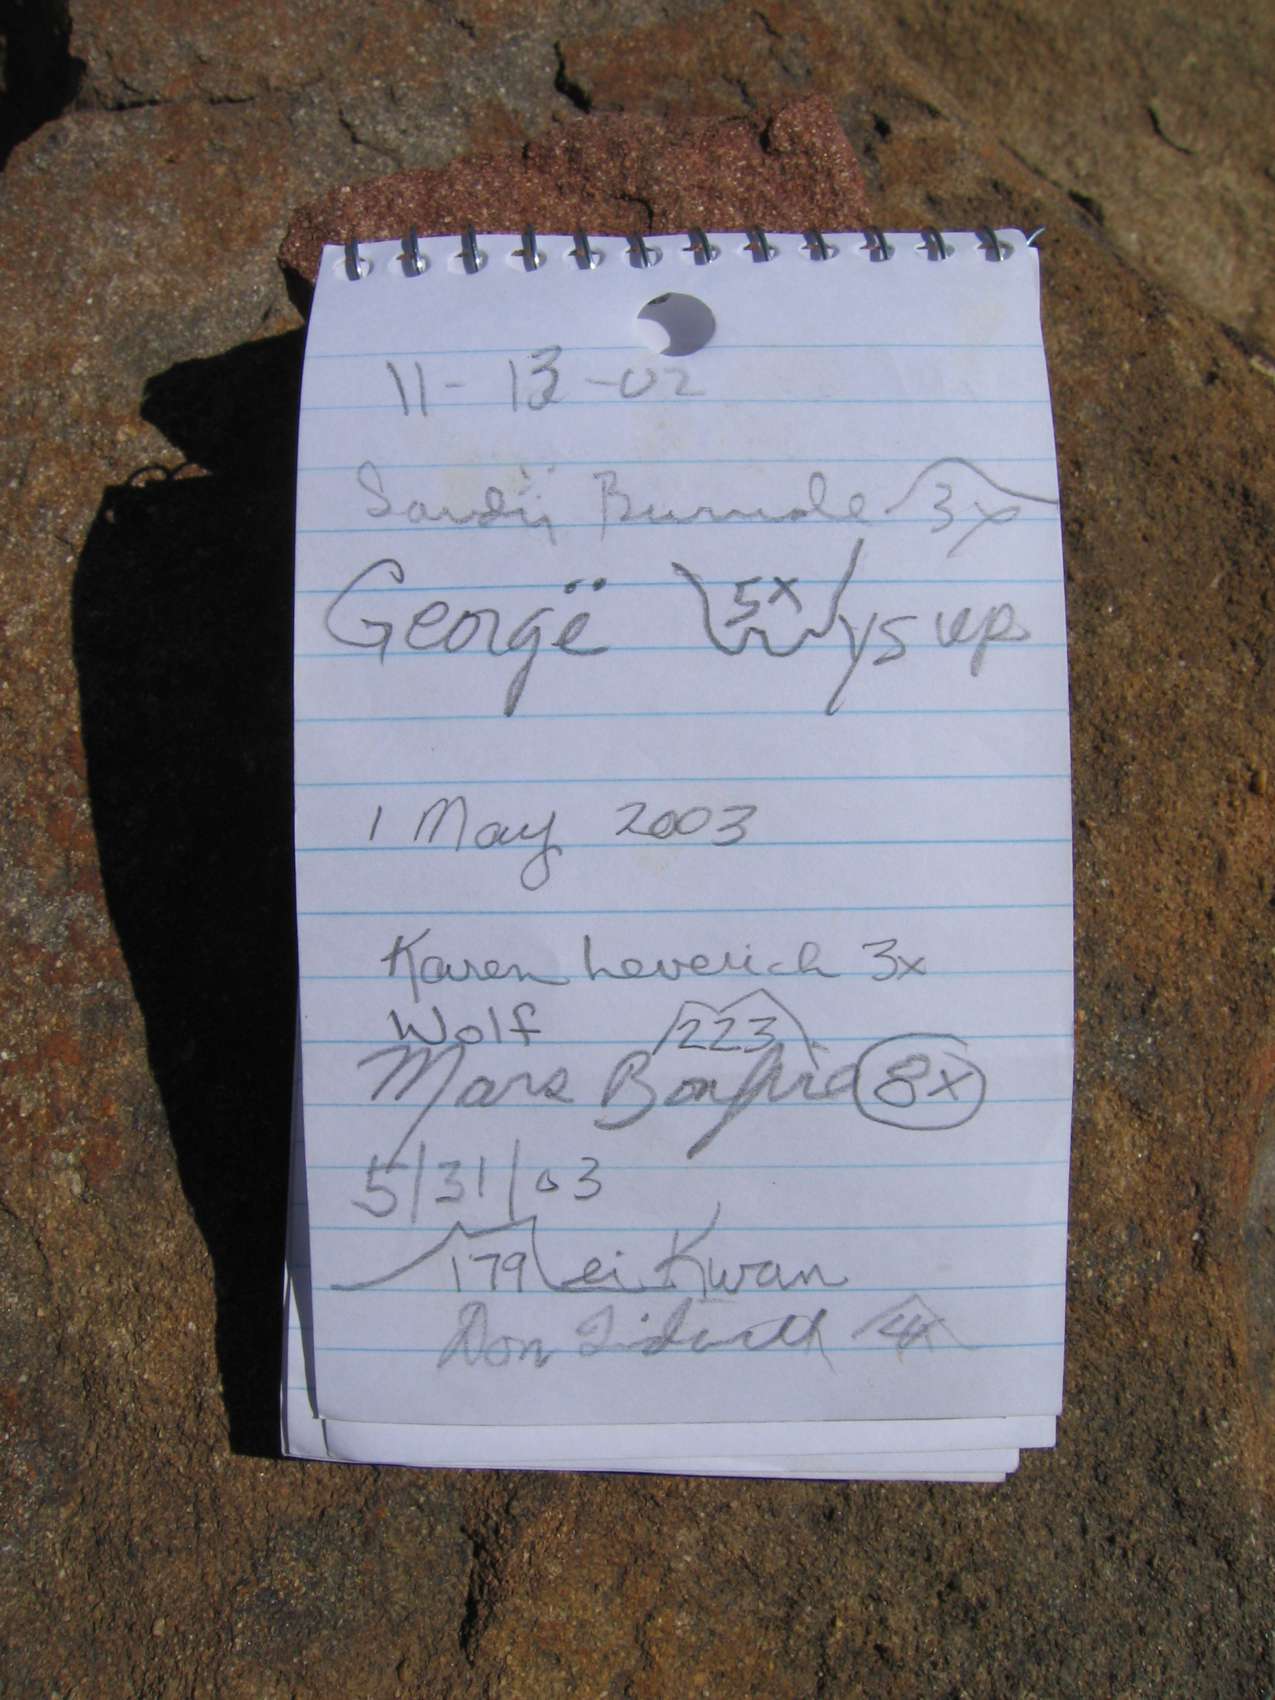 11-13-02
Sandy Burnside 3x
Georgë 5x Wys up
1 May 2003
Karen Leverich 3x
Wolf 223
Mars Bonfire 8x
5/31/03
179 Lei Kwan
Don Tidwell 4x